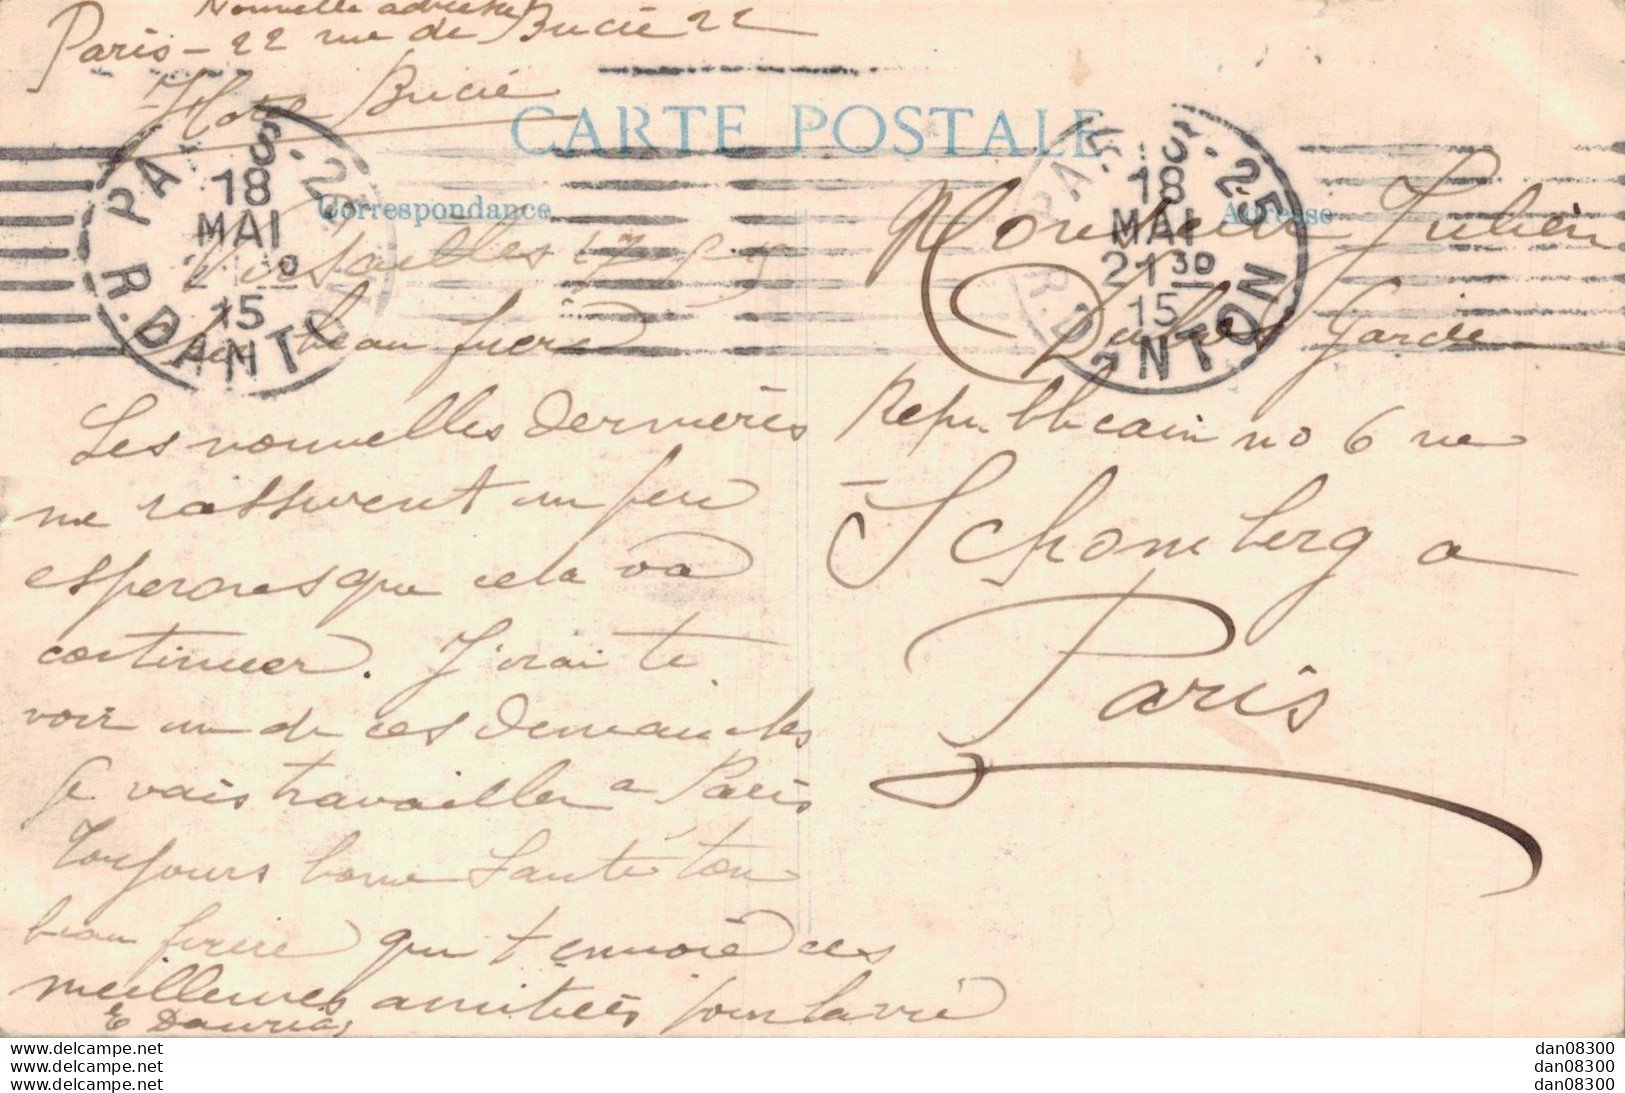 Nouvelle adresse
Paris - 22 rue de Bucie 22
Hote Bucié
CARTE POSTALE
Correspondance
Adresse
PARIS - 25
18
MAI
21 30
15
R. DANTON
PARIS - 25
18
MAI
21 30
15
R. DANTON
Versailles 17
beau frere
Les nouvelles dernieres
me rassurent un peu
esperons que cela va
continuer. J'irai te
voir un de ces Demanches
Je vais travailler a Paris
Toujours bonne Santé ton
beau frere qui t envoie ces
meilleures amitiées pour la vie
E Daurias
Monsieur Julien
Dubres Garde
Republicain no 6 rue
Schomberg a
Paris
www.delcampe.net
www.delcampe.net
www.delcampe.net
dan08300
dan08300
dan08300